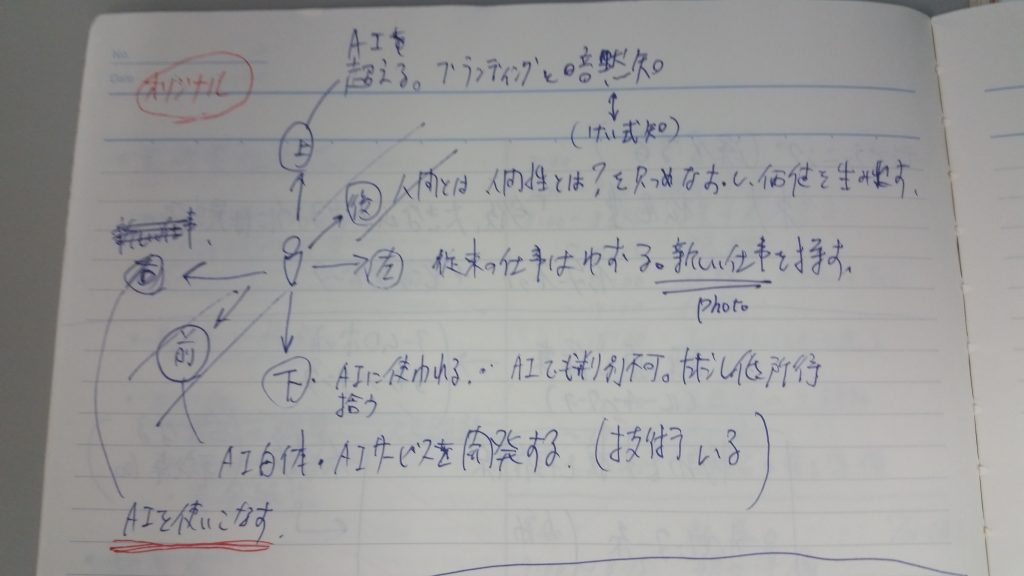 No.
Date
オリジナル
AIを
超える。ブランディングと暗黙知
(けい式知)
上
後
人間とは 人間性とは?を見つめなおし、価値を生み出す。
右
左
従来の仕事はゆずる。新しい仕事を探す。
photo
前
下
AIに使われる。
AIでも判別不可。ただし低所得
拾う
AI自体・AIサービスを開発する。(技術者いる)
AIを使いこなす。